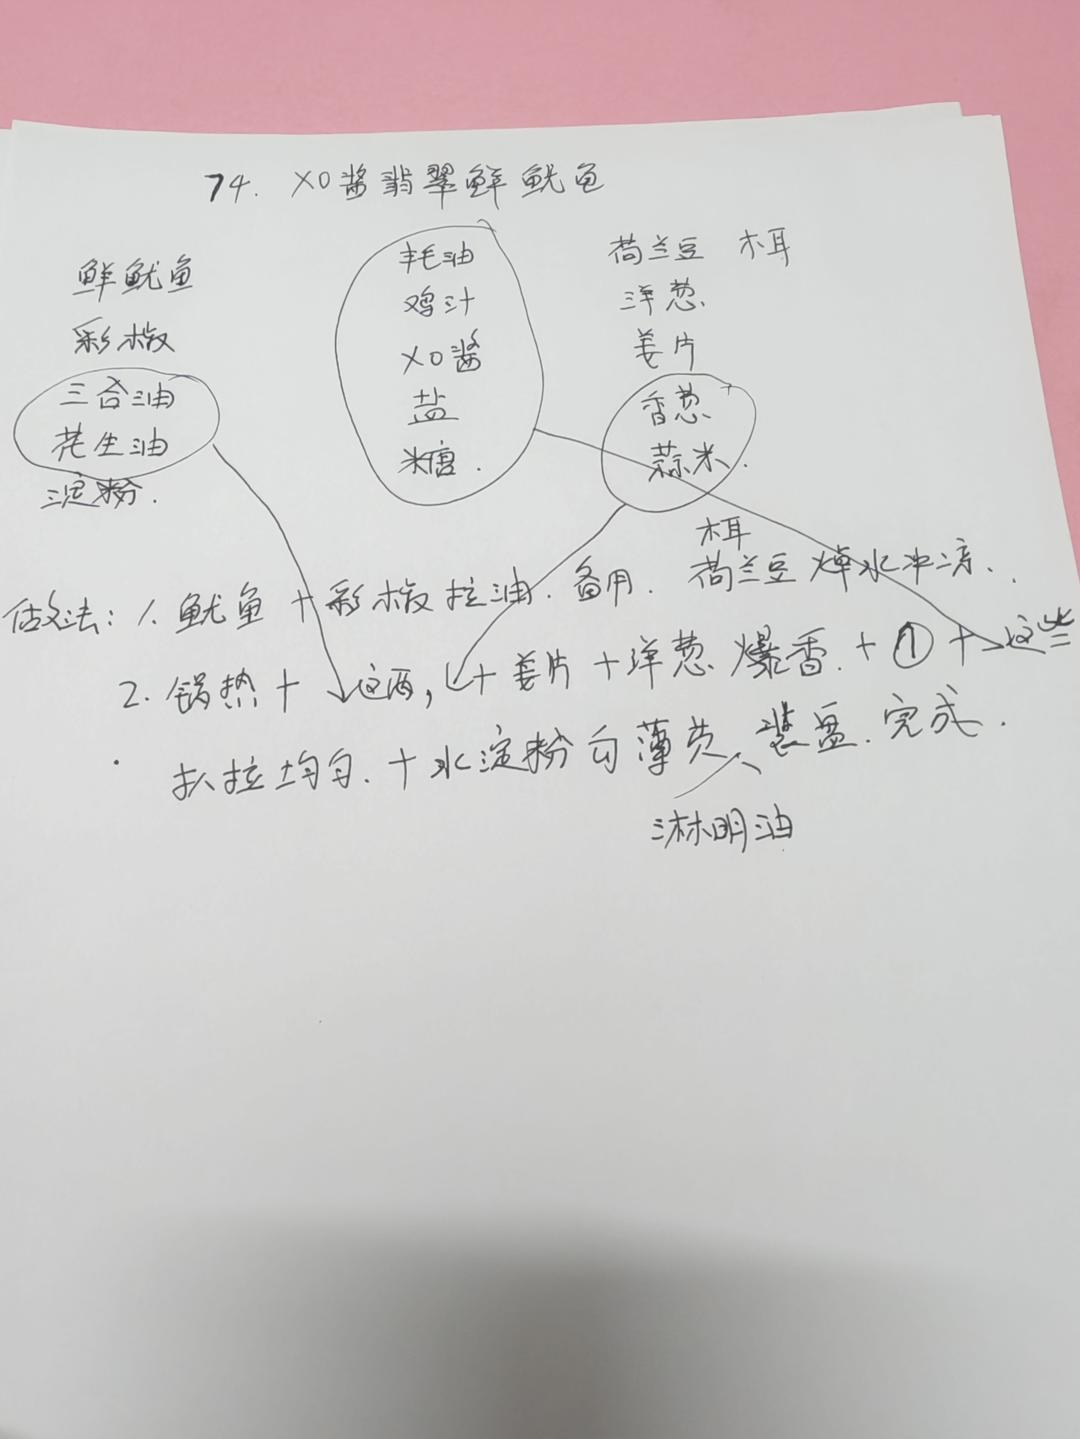 74. XO酱翡翠鲜鱿鱼
鲜鱿鱼
彩椒
三合油
花生油
淀粉.
蚝油
鸡汁
XO酱
盐
糖.
荷兰豆 木耳
洋葱.
姜片
香葱
蒜米.
做法: 1. 鱿鱼+彩椒拉油. 备用. 荷兰豆焯水冲凉.
木耳
2. 锅热+这两, +姜片+洋葱爆香.+①+这些
扒拉均匀.+水淀粉勾薄芡、装盘.完成.
淋明油